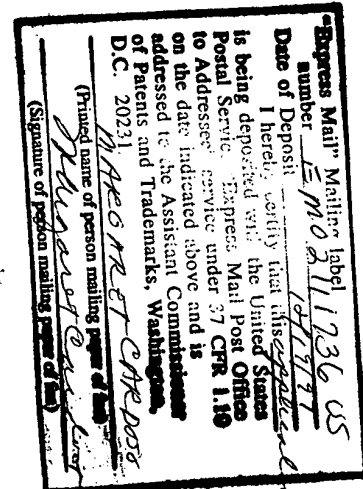 "Express Mail" Mailing label
number EM027111736 US
Date of Deposit 12/19/97
I hereby certify that this application
is being deposited with the United States
Postal Service "Express Mail Post Office
to Addressee" service under 37 CFR 1.10
on the date indicated above and is
addressed to the Assistant Commissioner
of Patents and Trademarks, Washington,
D.C. 20231
MARGARET CARDOSO
(Printed name of person mailing paper of fee)
Margaret Cardoso
(Signature of person mailing paper of fee)